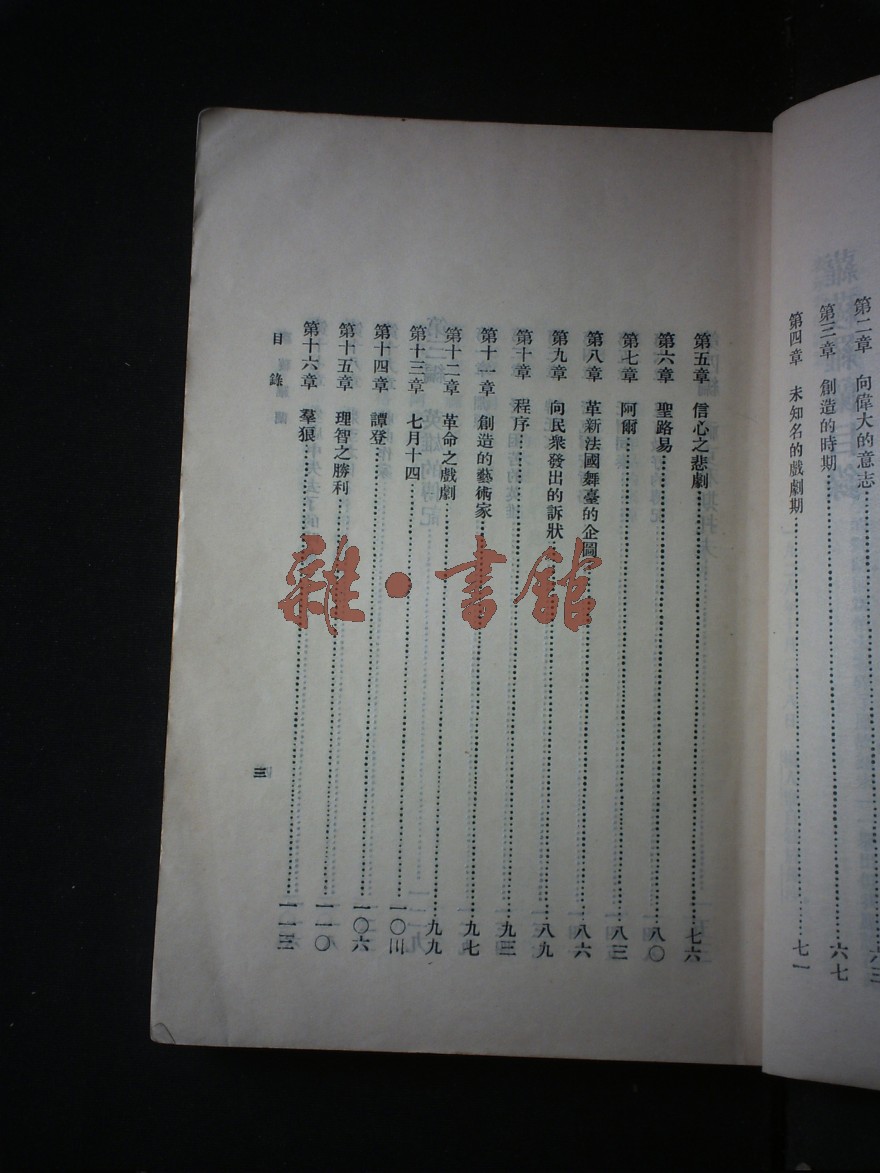 第二章 向偉大的意志……六三
第三章 創造的時期……六七
第四章 未知名的戲劇期……七一
第五章 信心之悲劇……七六
第六章 聖路易……八〇
第七章 阿爾……八三
第八章 革新法國舞臺的企圖……八六
第九章 向民衆發出的訴狀……八九
第十章 程序……九三
第十一章 創造的藝術家……九七
第十二章 革命之戲劇……九九
第十三章 七月十四……一〇三
第十四章 譚登……一〇六
第十五章 理智之勝利……一一〇
第十六章 羣狼……一一三
目錄
三
雜·書館